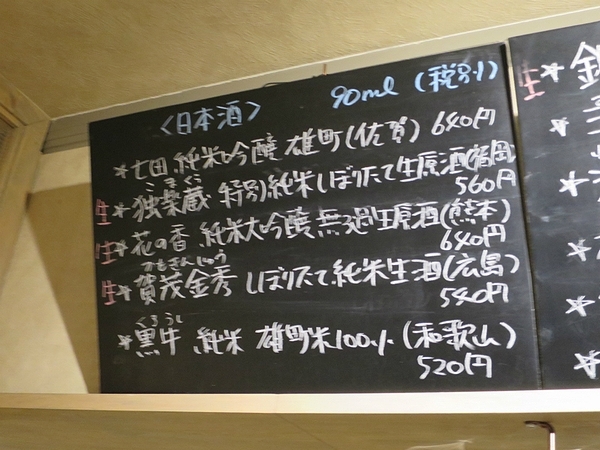 <日本酒> 90ml (税別)
*七田 純米吟醸 雄町(佐賀) 640円
こまぐら
生*独楽蔵 特別純米しぼりたて生原酒(福岡)
560円
生*花の香 純米大吟醸無ろ過生原酒(熊本)
640円
かもきんしゅう
生*賀茂金秀 しぼりたて純米生酒(広島)
540円
くろうし
*黒牛 純米 雄町米100%(和歌山)
520円
生*